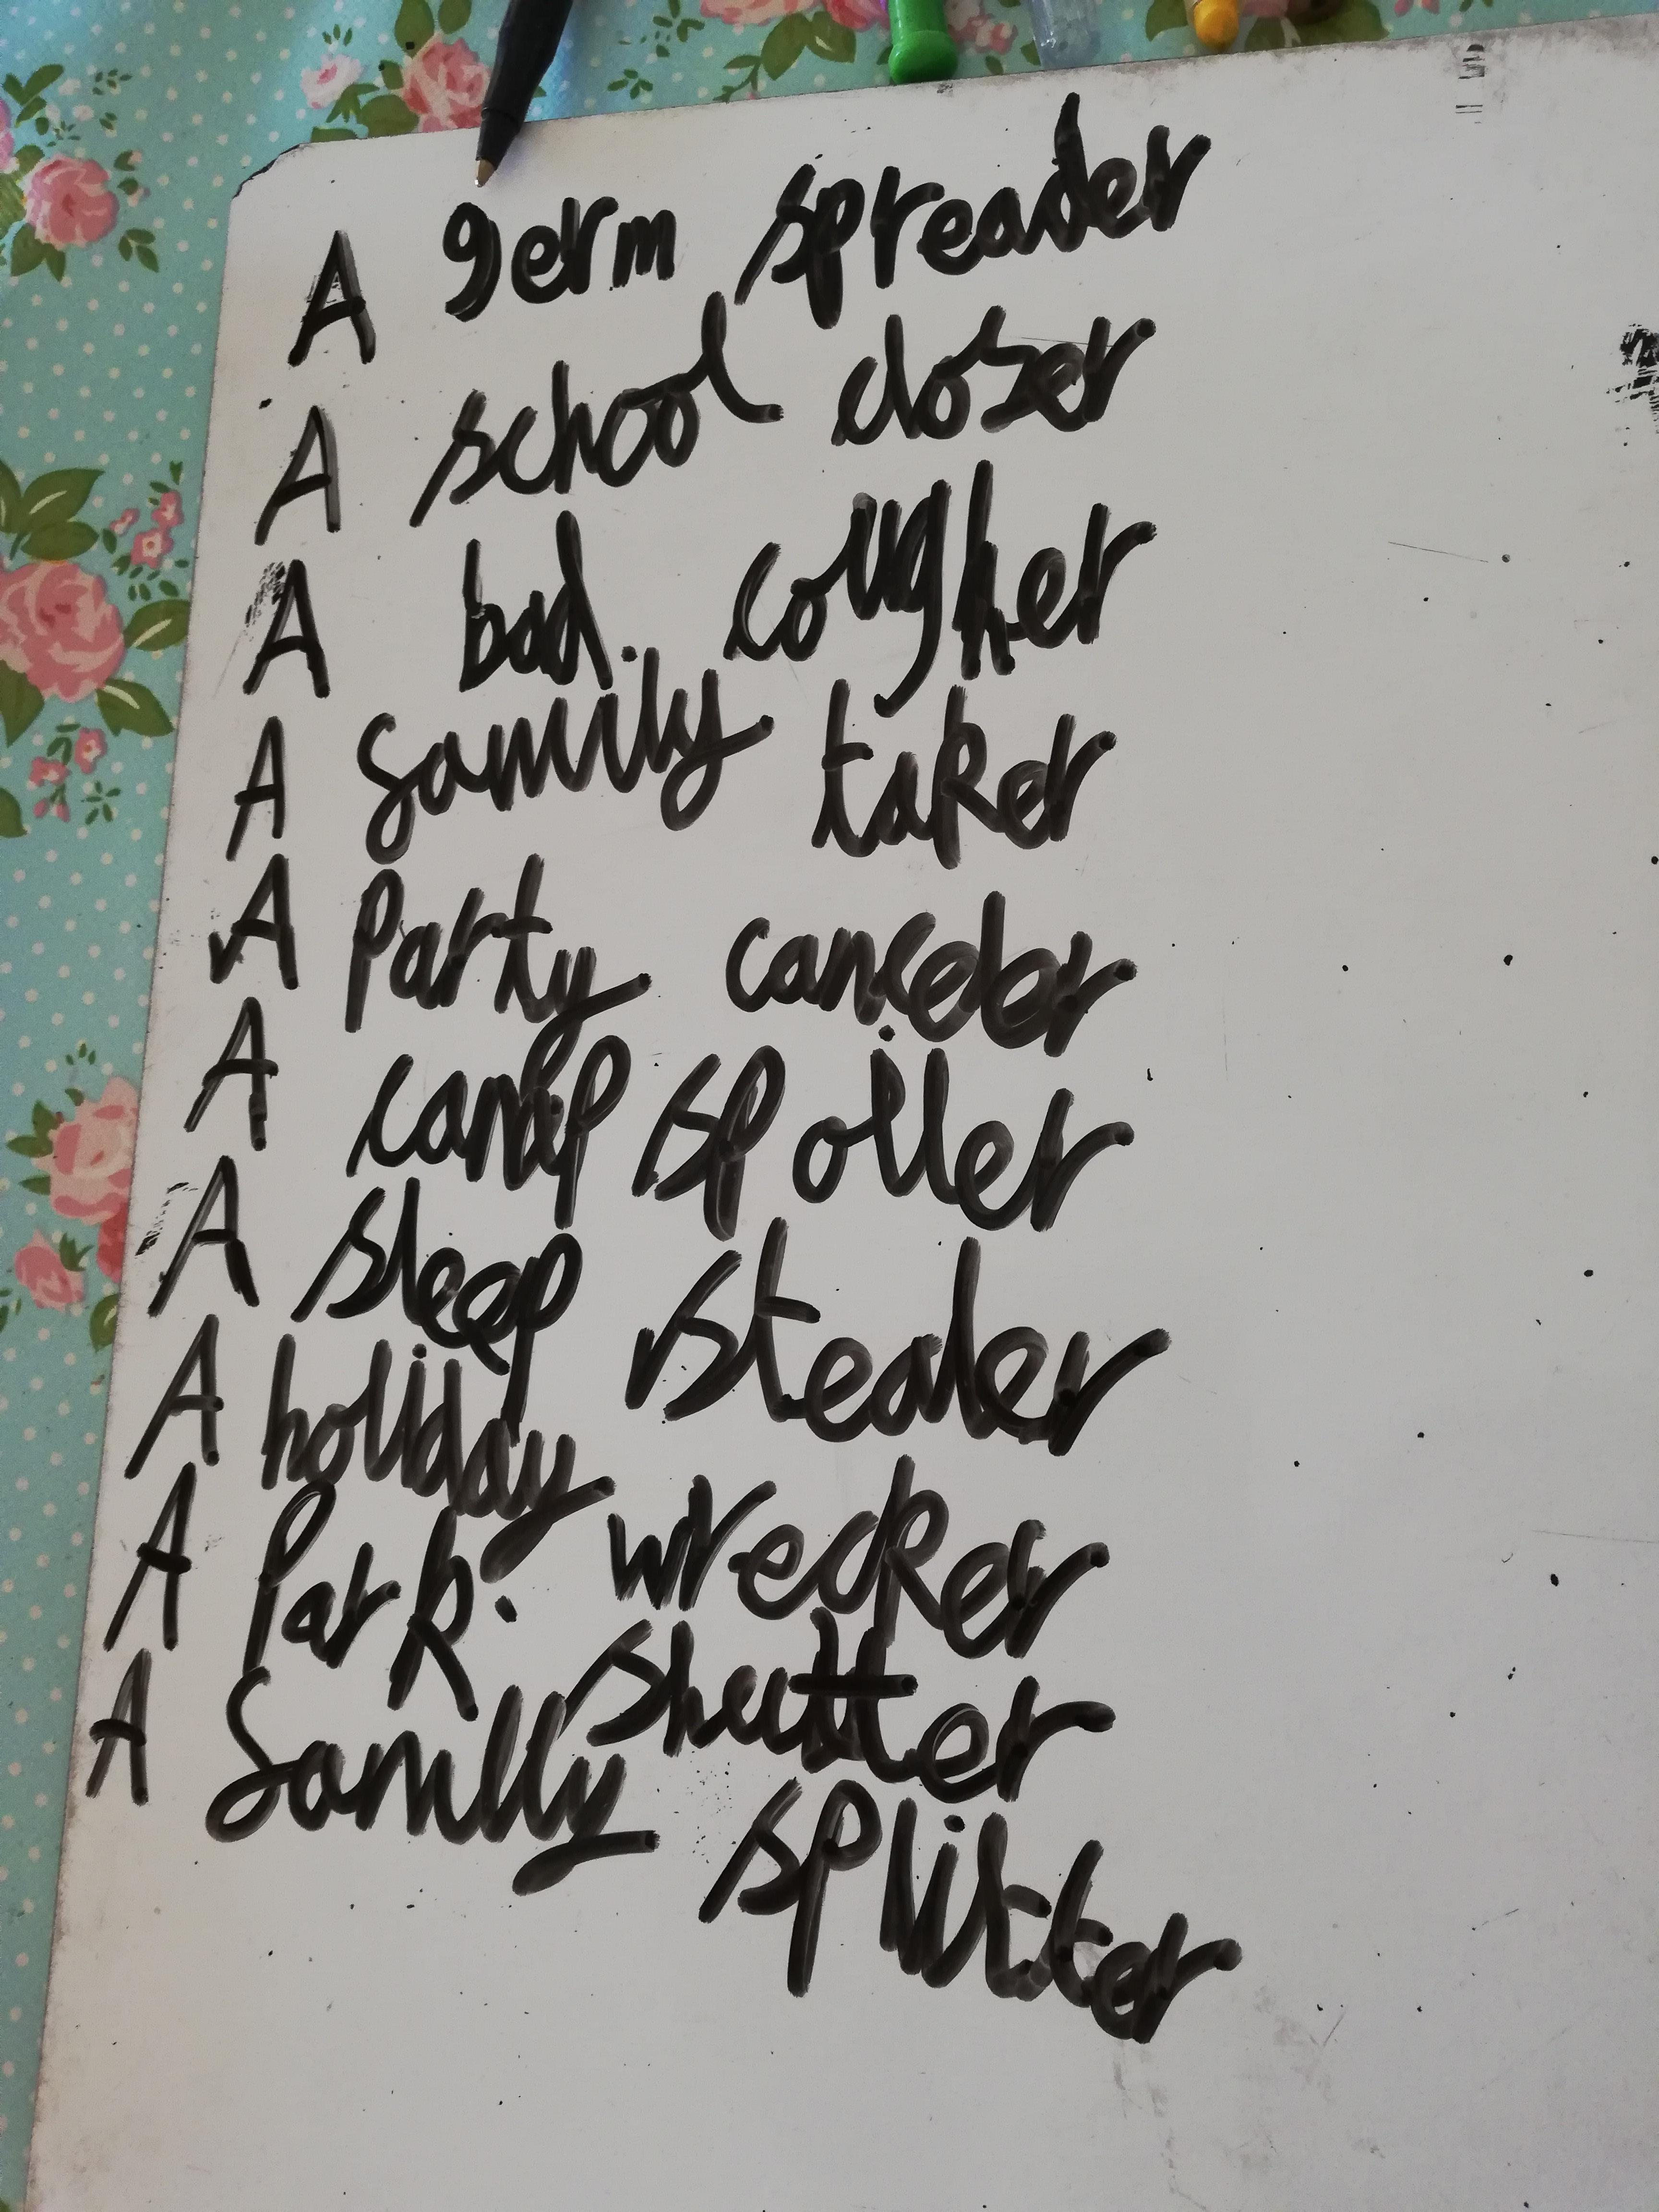 A germ spreader
A school closer
A bad cougher
A family taker
A party canceler
A camp spoiler
A sleep stealer
A holiday wrecker
A Park shutter
A family splitter